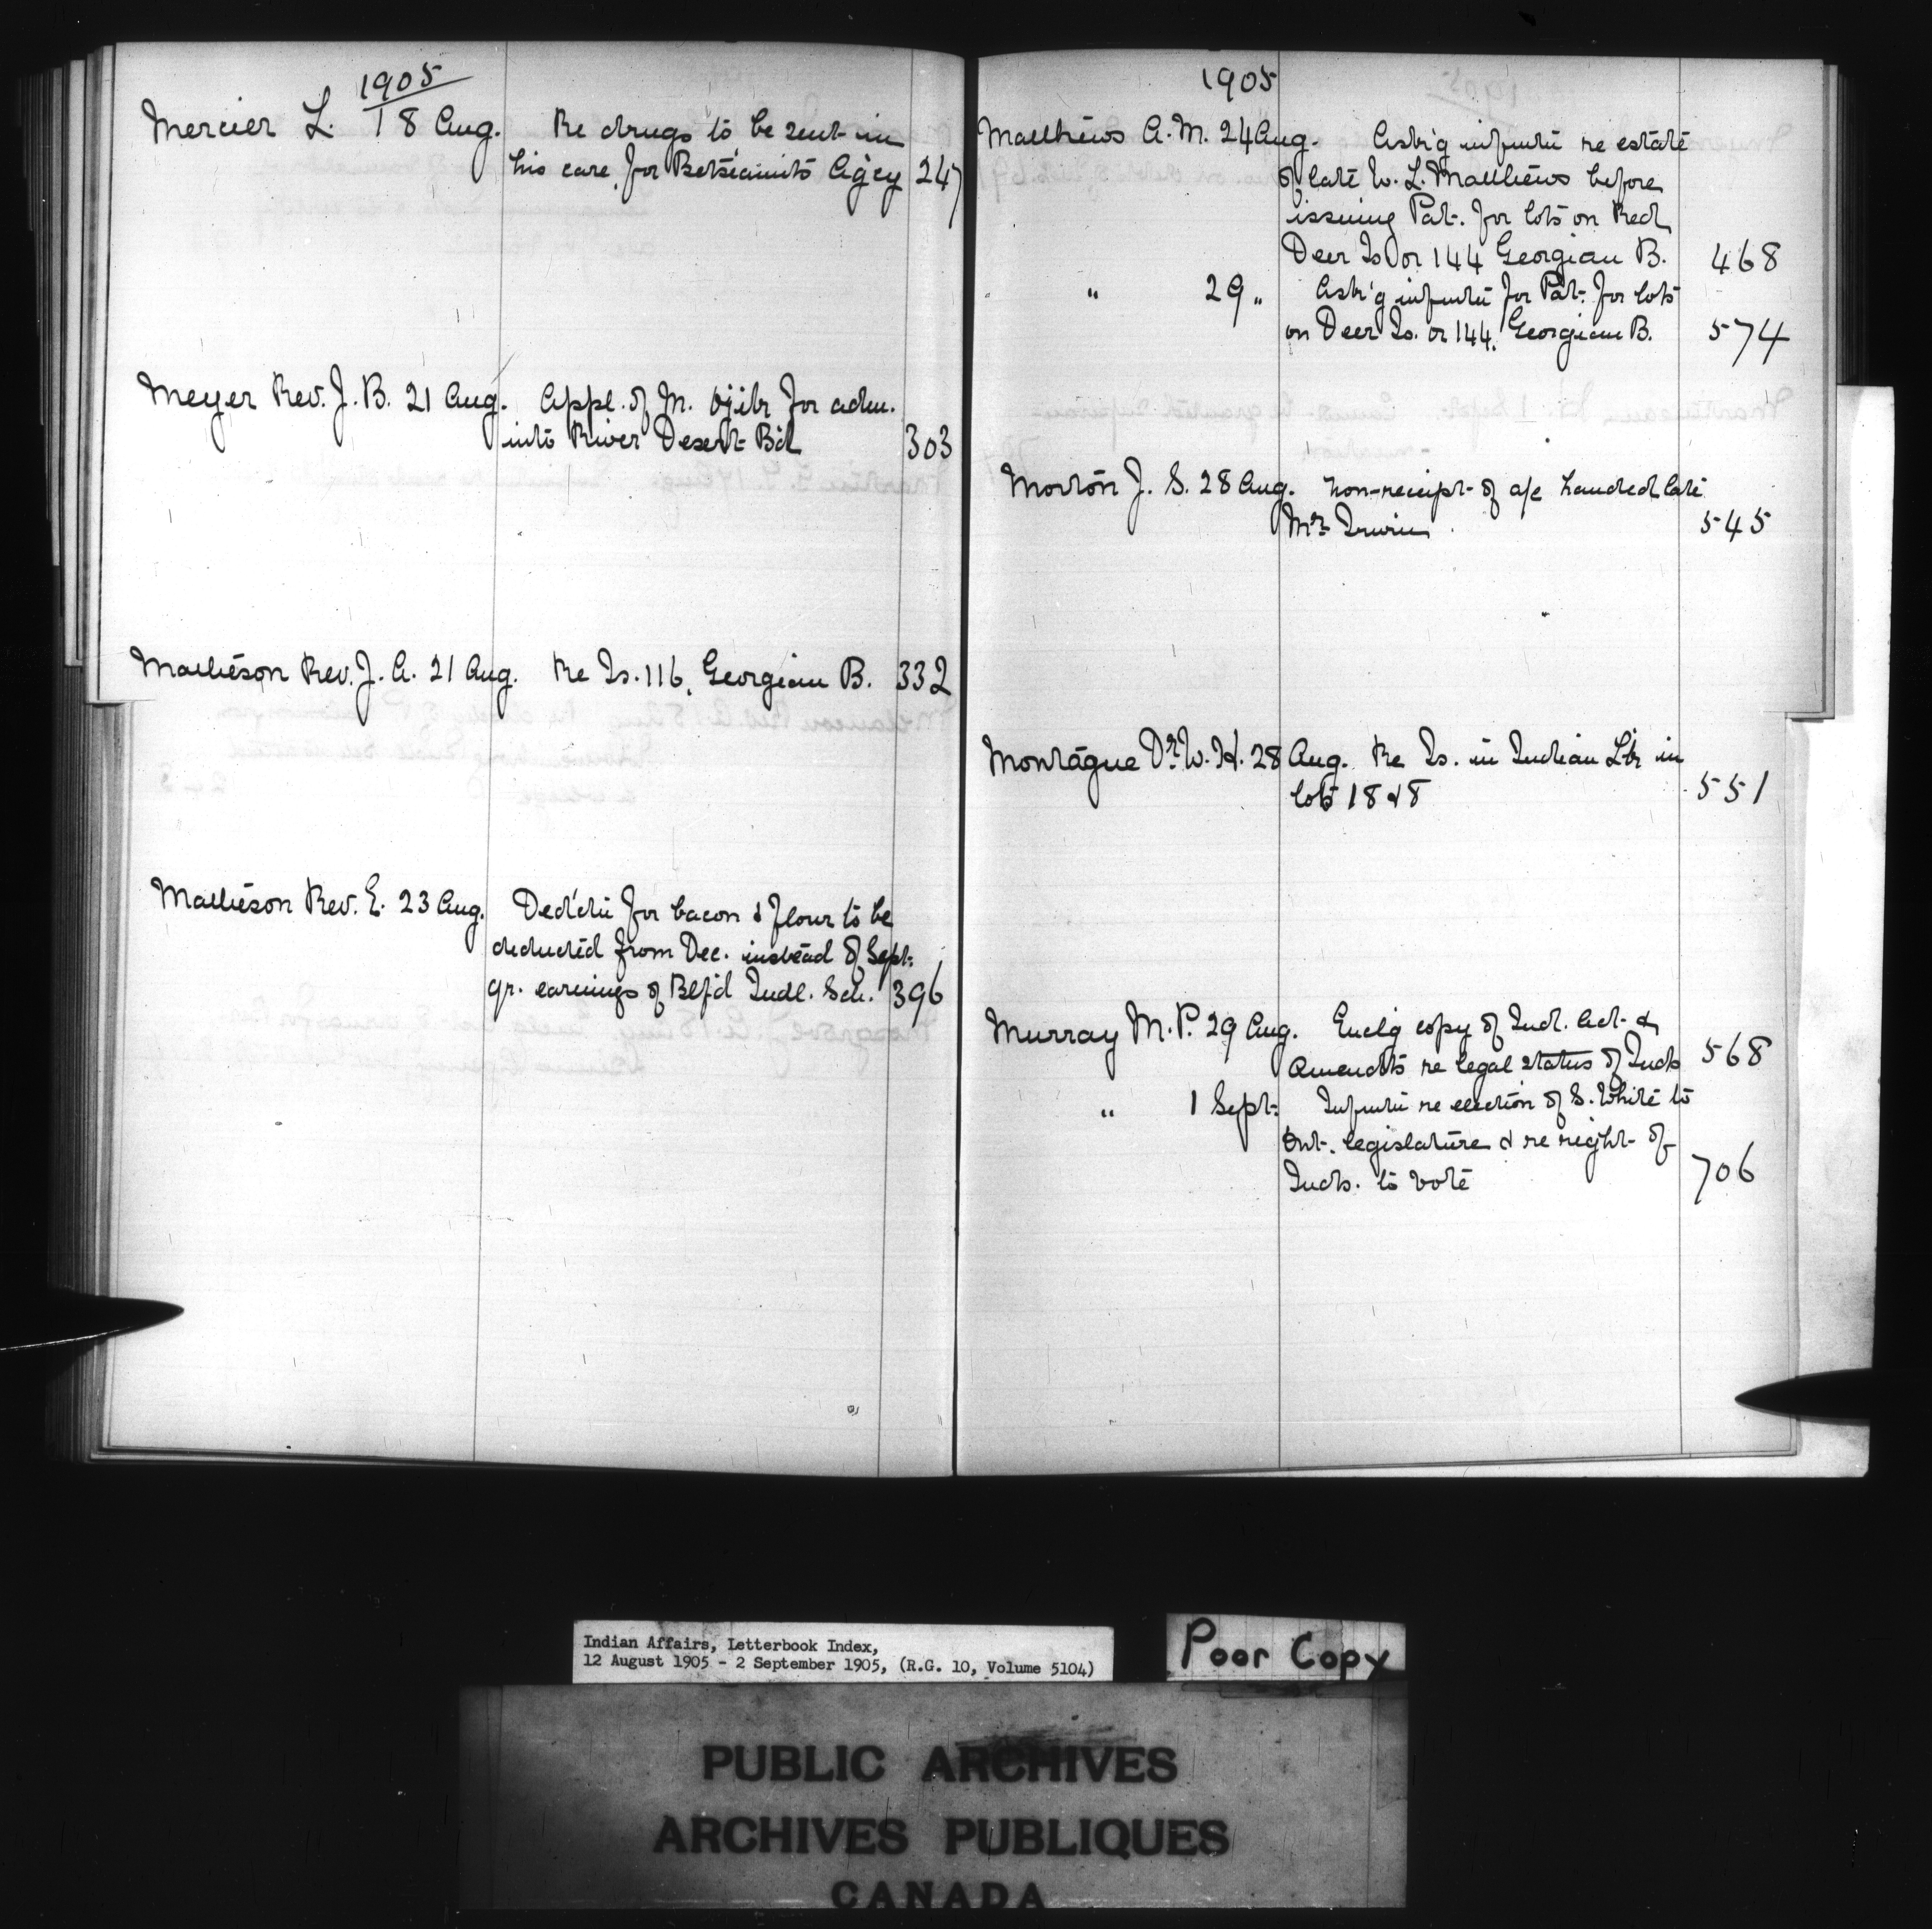 1905
Mercier L. 18 Aug. Re drugs to be sent in
his care, for Betsiamits Ag'cy 247
Meyer Rev. J. B. 21 Aug. Appl. of M. Ojibr for adm.
into River Desert Bd 303
Mathieson Rev. J. A. 21 Aug. Re Is. 116, Georgian B. 332
Mathieson Rev. E. 23 Aug. Ded'ctn for bacon & flour to be
deducted from Dec. instead of Sept.
qr. earnings of Btlf'd Indl. Sch. 396
1905
Matthews A. M. 24 Aug. Ask'g inf'mtn re estate
of late W. L. Matthews before
issuing Pat. for lots on Red
Deer Is. or 144 Georgian B. 468
" 29 " Ask'g inf'mtn for Pat. for lots
on Deer Is. or 144, Georgian B. 574
Morton J. S. 28 Aug. Non-receipt of a/c handed late
Mr. Irwin 545
Montague Dr. W. H. 28 Aug. Re Is. in Indian in
lots 18 & 8 551
Murray M. P. 29 Aug. Encl'g copy of Ind. Act &
Amendts re legal status of Inds 568
" 1 Sept. Inf'mtn re election of S. White to
Ont. legislature & re right of
Inds. to vote 706
Indian Affairs, Letterbook Index,
12 August 1905 - 2 September 1905, (R.G. 10, Volume 5104)
Poor Copy
PUBLIC ARCHIVES
ARCHIVES PUBLIQUES
CANADA